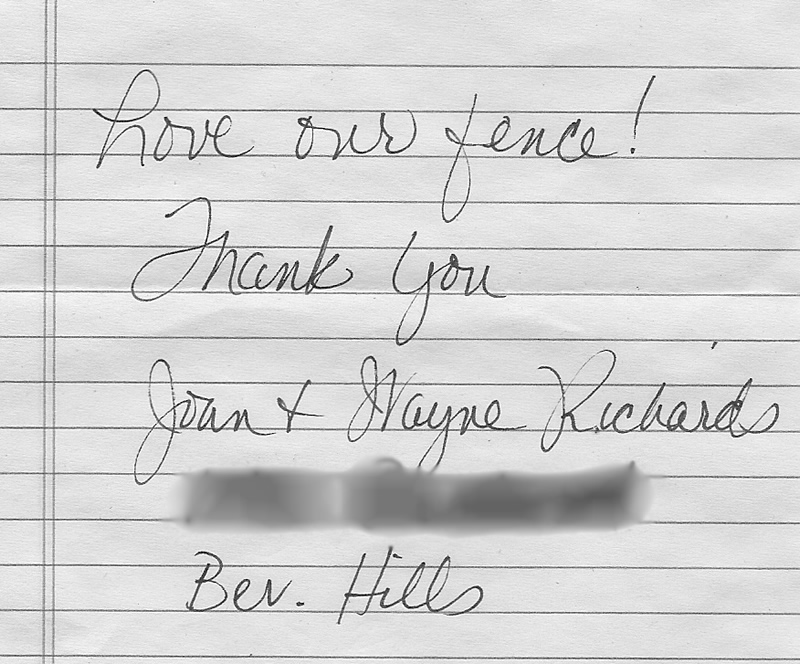 Love our fence!
Thank you
Joan & Wayne Richards
Bev. Hills